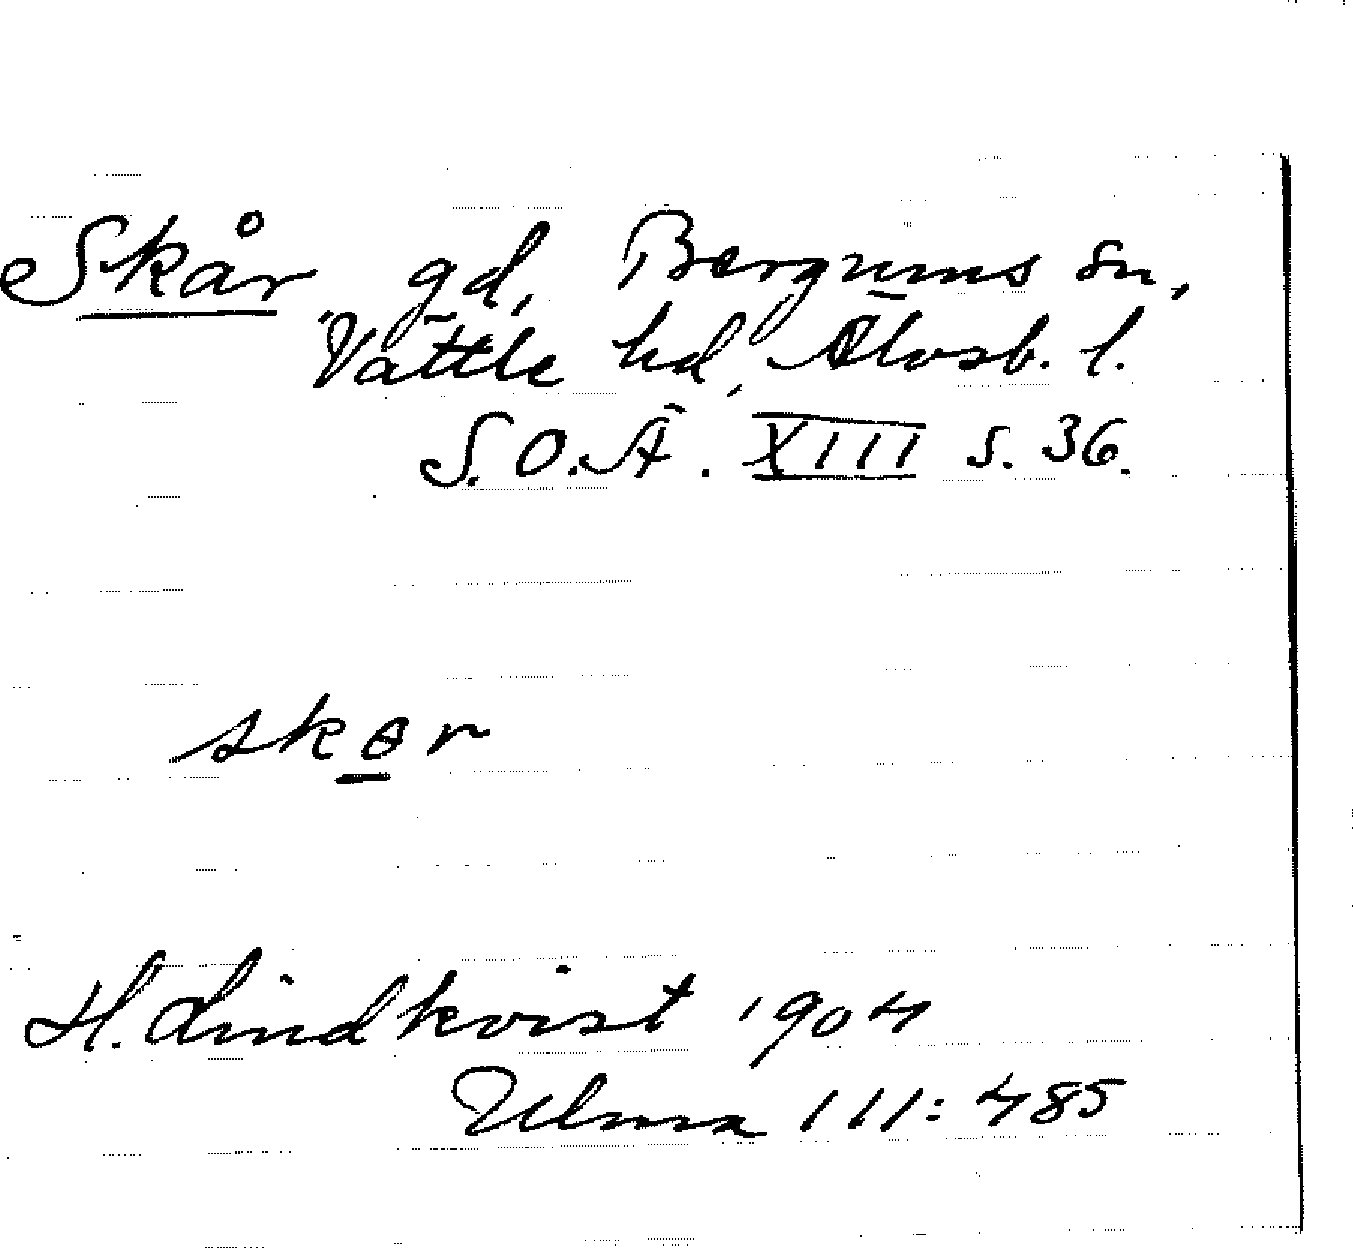 Skår gd, Bergums sn,
Vättle hd, Älvsb. l.
S.O.Ä. XIII s. 36.
skɵr
H. Lindkvist 1904
Ulma 111:485